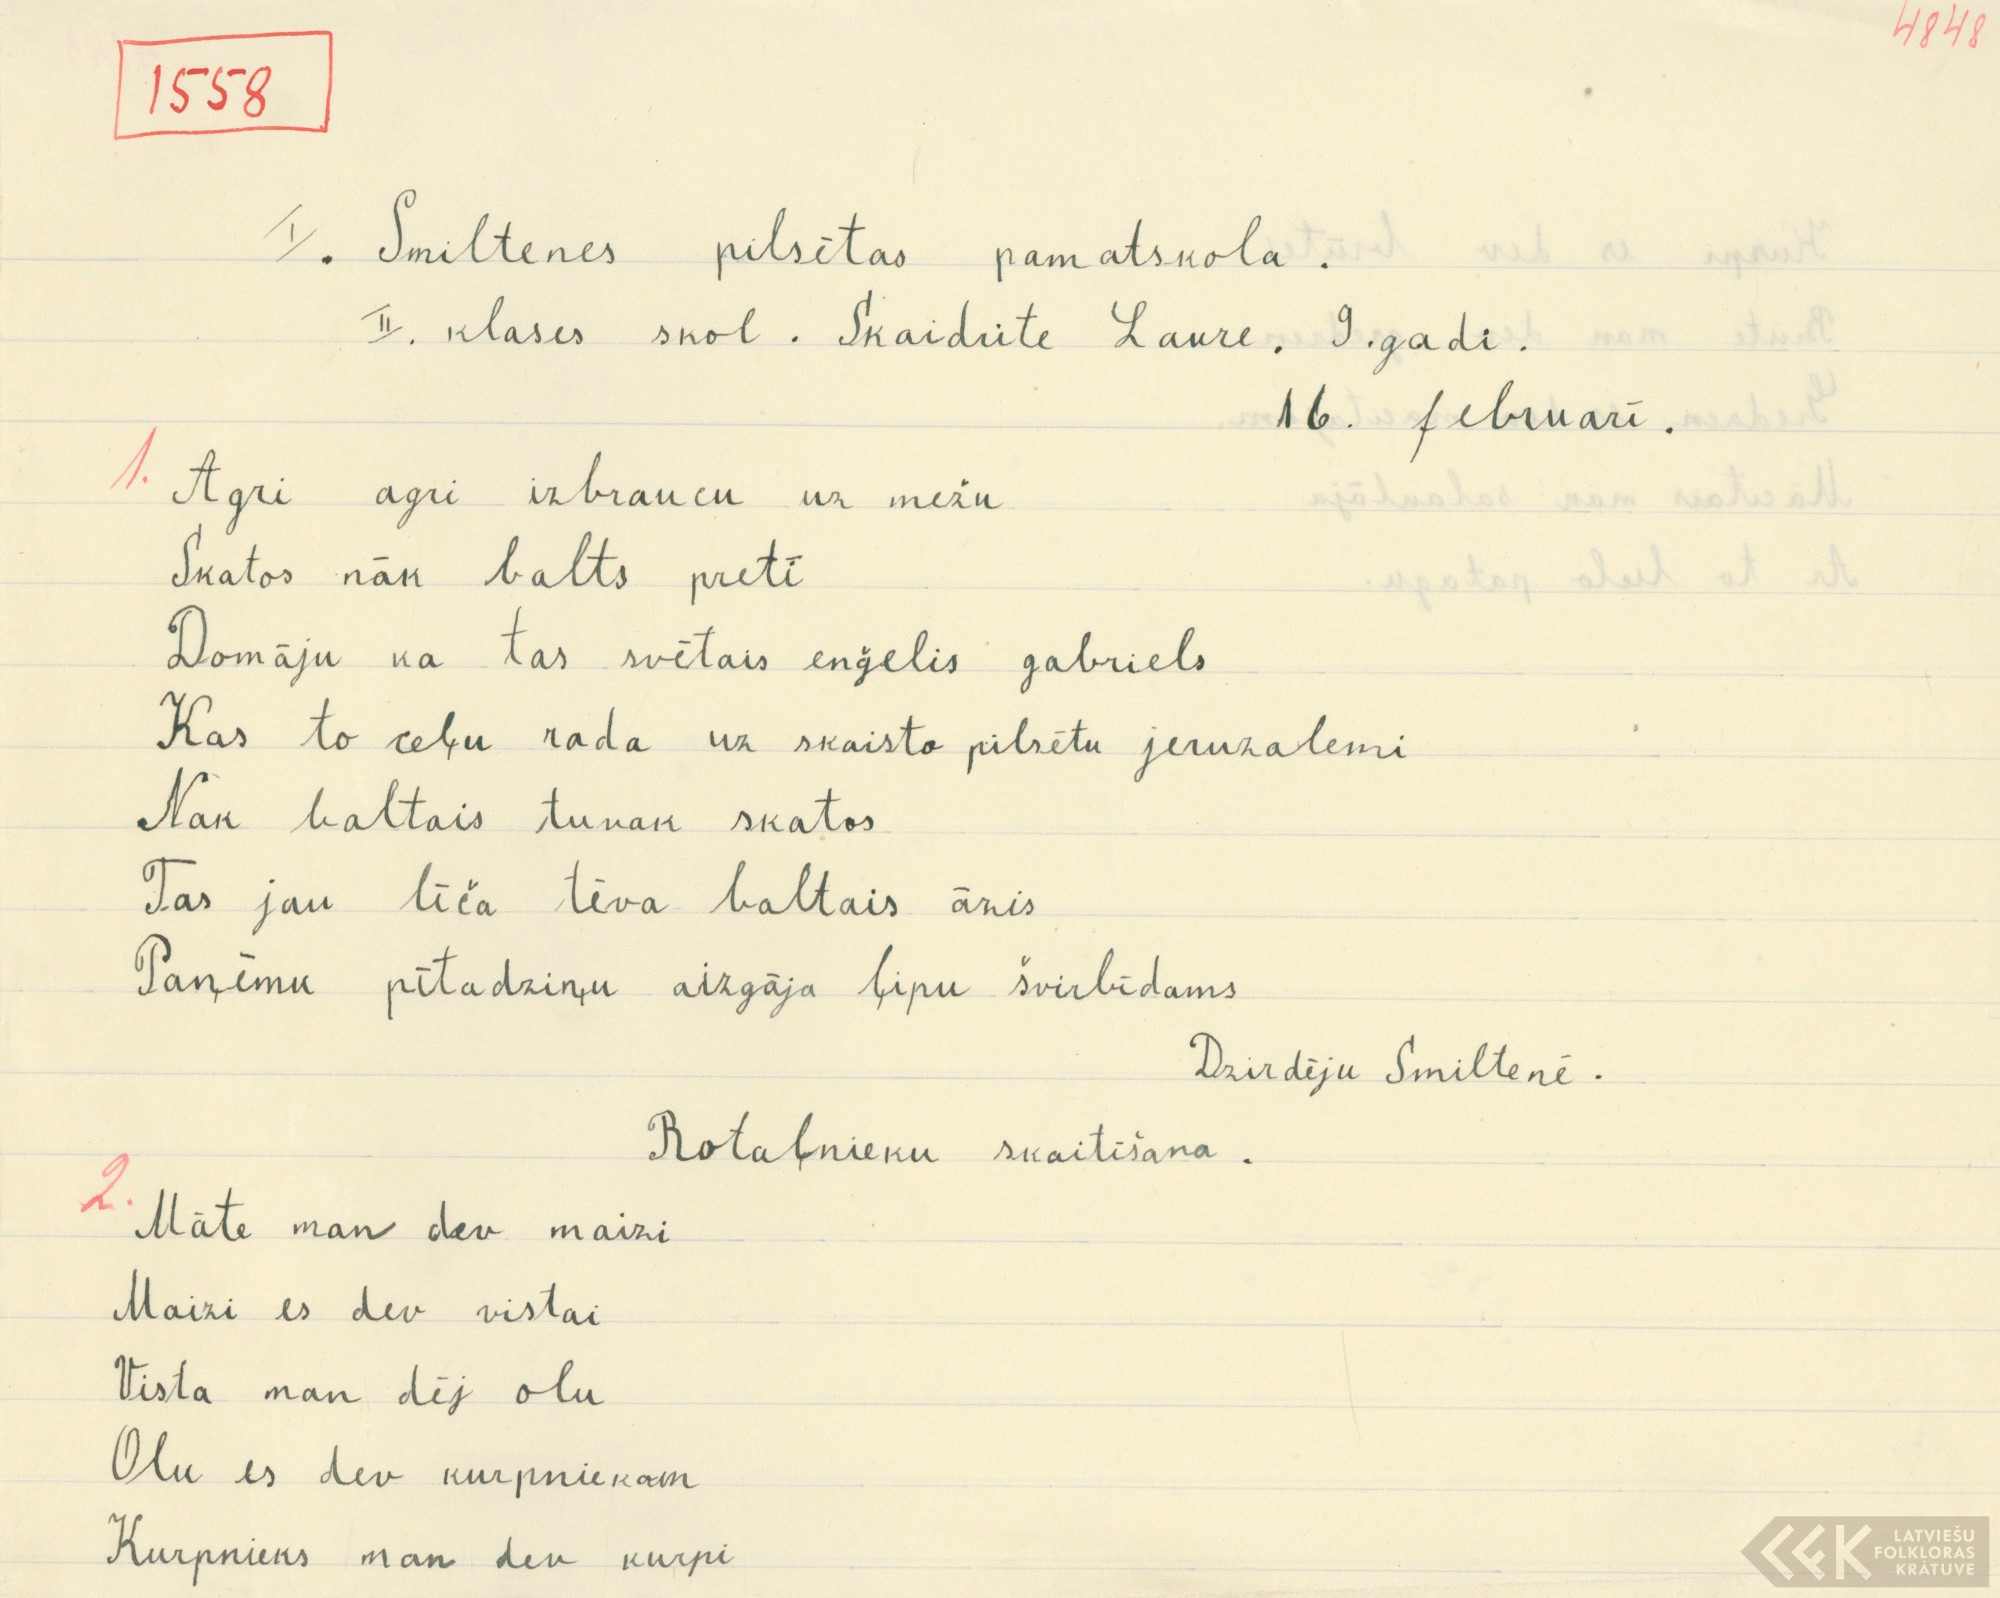 4848
1558
I. Smiltenes pilsētas pamatskola.
II. klases skol. Skaidrīte Laure. 9.gadi.
16. februarī.
1. Agri agri izbraucu uz mežu
Skatos nāk balts pretī
Domāju ka tas svētais enģelis gabriels
Kas to ceļu rada uz skaisto pilsētu jeruzalemi
Nak baltais tuvak skatos
Tas jau līča tēva baltais āzis
Paņēmu pītadziņu aizgāja ļipu švirbīdams
Dzirdēju Smiltenē.
Rotaļnieku skaitīšana.
2. Māte man dev maizi
Maizi es dev vistai
Vista man dēj olu
Olu es dev kurpniekam
Kurpnieks man dev kurpi
LATVIEŠU
FOLKLORAS
KRĀTUVE